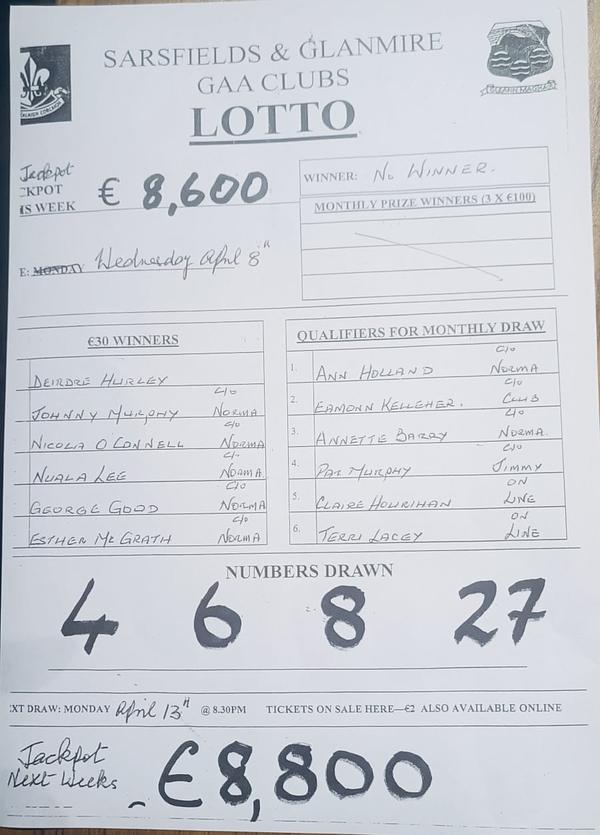 SARSFIELDS & GLANMIRE
GAA CLUBS
LOTTO
GLEANN MAGHAIR
Jackpot
CKPOT
IS WEEK
€ 8,600
WINNER: No WINNER.
MONTHLY PRIZE WINNERS (3 X €100)
E: MONDAY Wednesday April 8th
€30 WINNERS
DEIRDRE HURLEY
JOHNNY MURPHY C/o NORMA
NICOLA O CONNELL C/o NORMA
NUALA LEE C/o NORMA
GEORGE GOOD C/o NORMA
ESTHER Mc GRATH C/o NORMA
QUALIFIERS FOR MONTHLY DRAW
1. ANN HOLLAND C/o NORMA
2. EAMONN KELLEHER. C/o CLUB
3. ANNETTE BARRY C/o NORMA.
4. PAT MURPHY C/o JIMMY
5. CLAIRE HOURIHAN ON LINE
6. TERRI LACEY ON LINE
NUMBERS DRAWN
4 6 8 27
EXT DRAW: MONDAY April 13th @ 8.30PM TICKETS ON SALE HERE—€2 ALSO AVAILABLE ONLINE
Jackpot
Next Weeks
€8,800